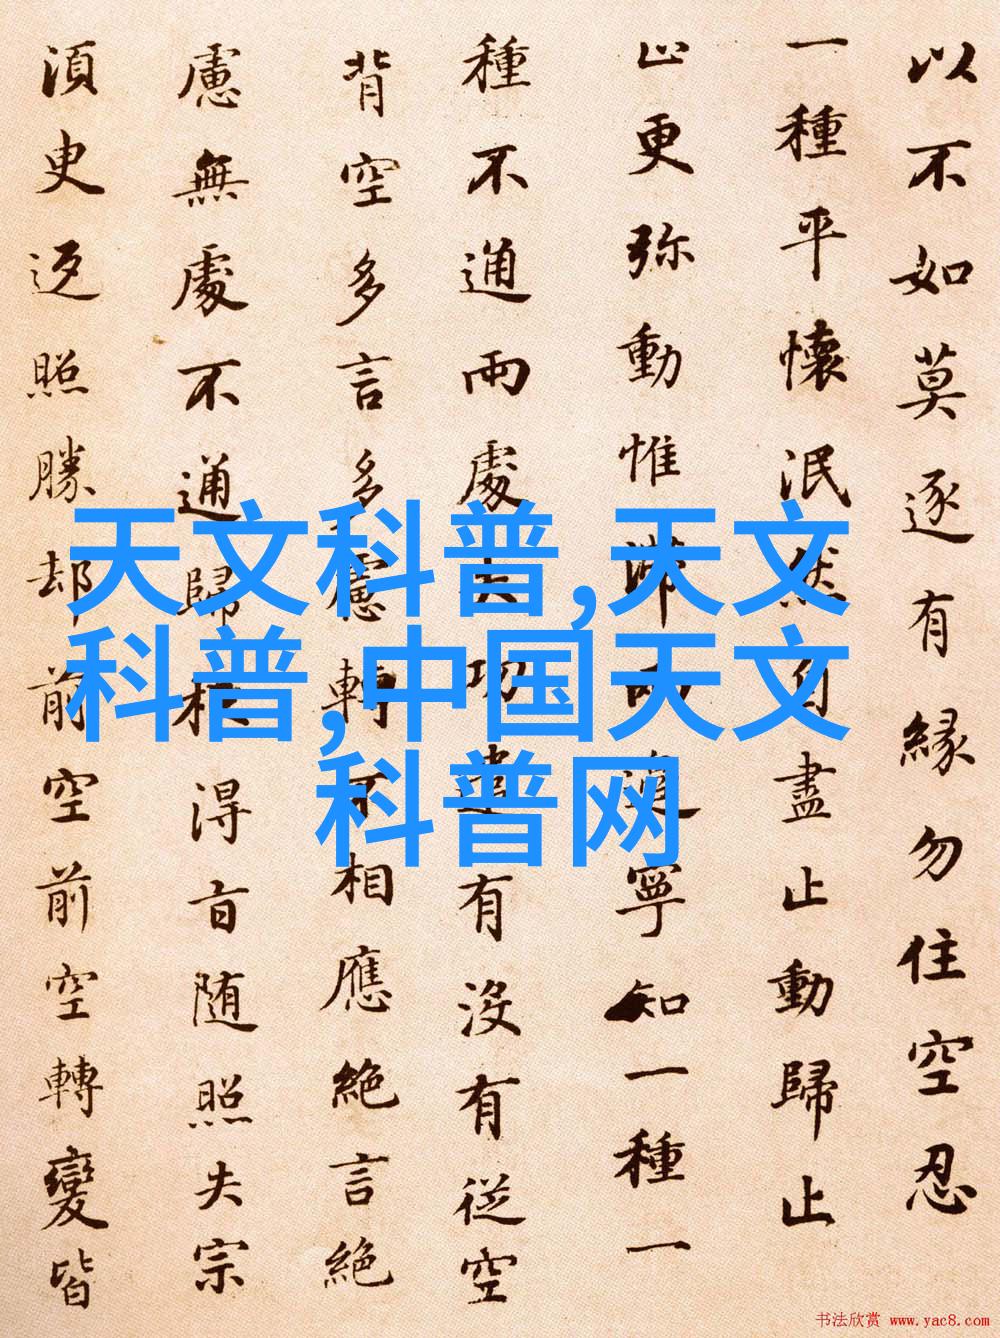 以不如莫逐有緣勿住空忍
一種平懷泯然自盡止動歸止
止更弥動惟滞兩邊寧知一種一
種不通兩處失功遣有沒有従空
背空多言多慮轉不相應絶言絶
慮無處不通歸根得旨随照失宗
須臾返照勝却前空前空轉變皆
天文科普,天文
科普,中国天文
科普网
书法欣赏 www.yac8.com